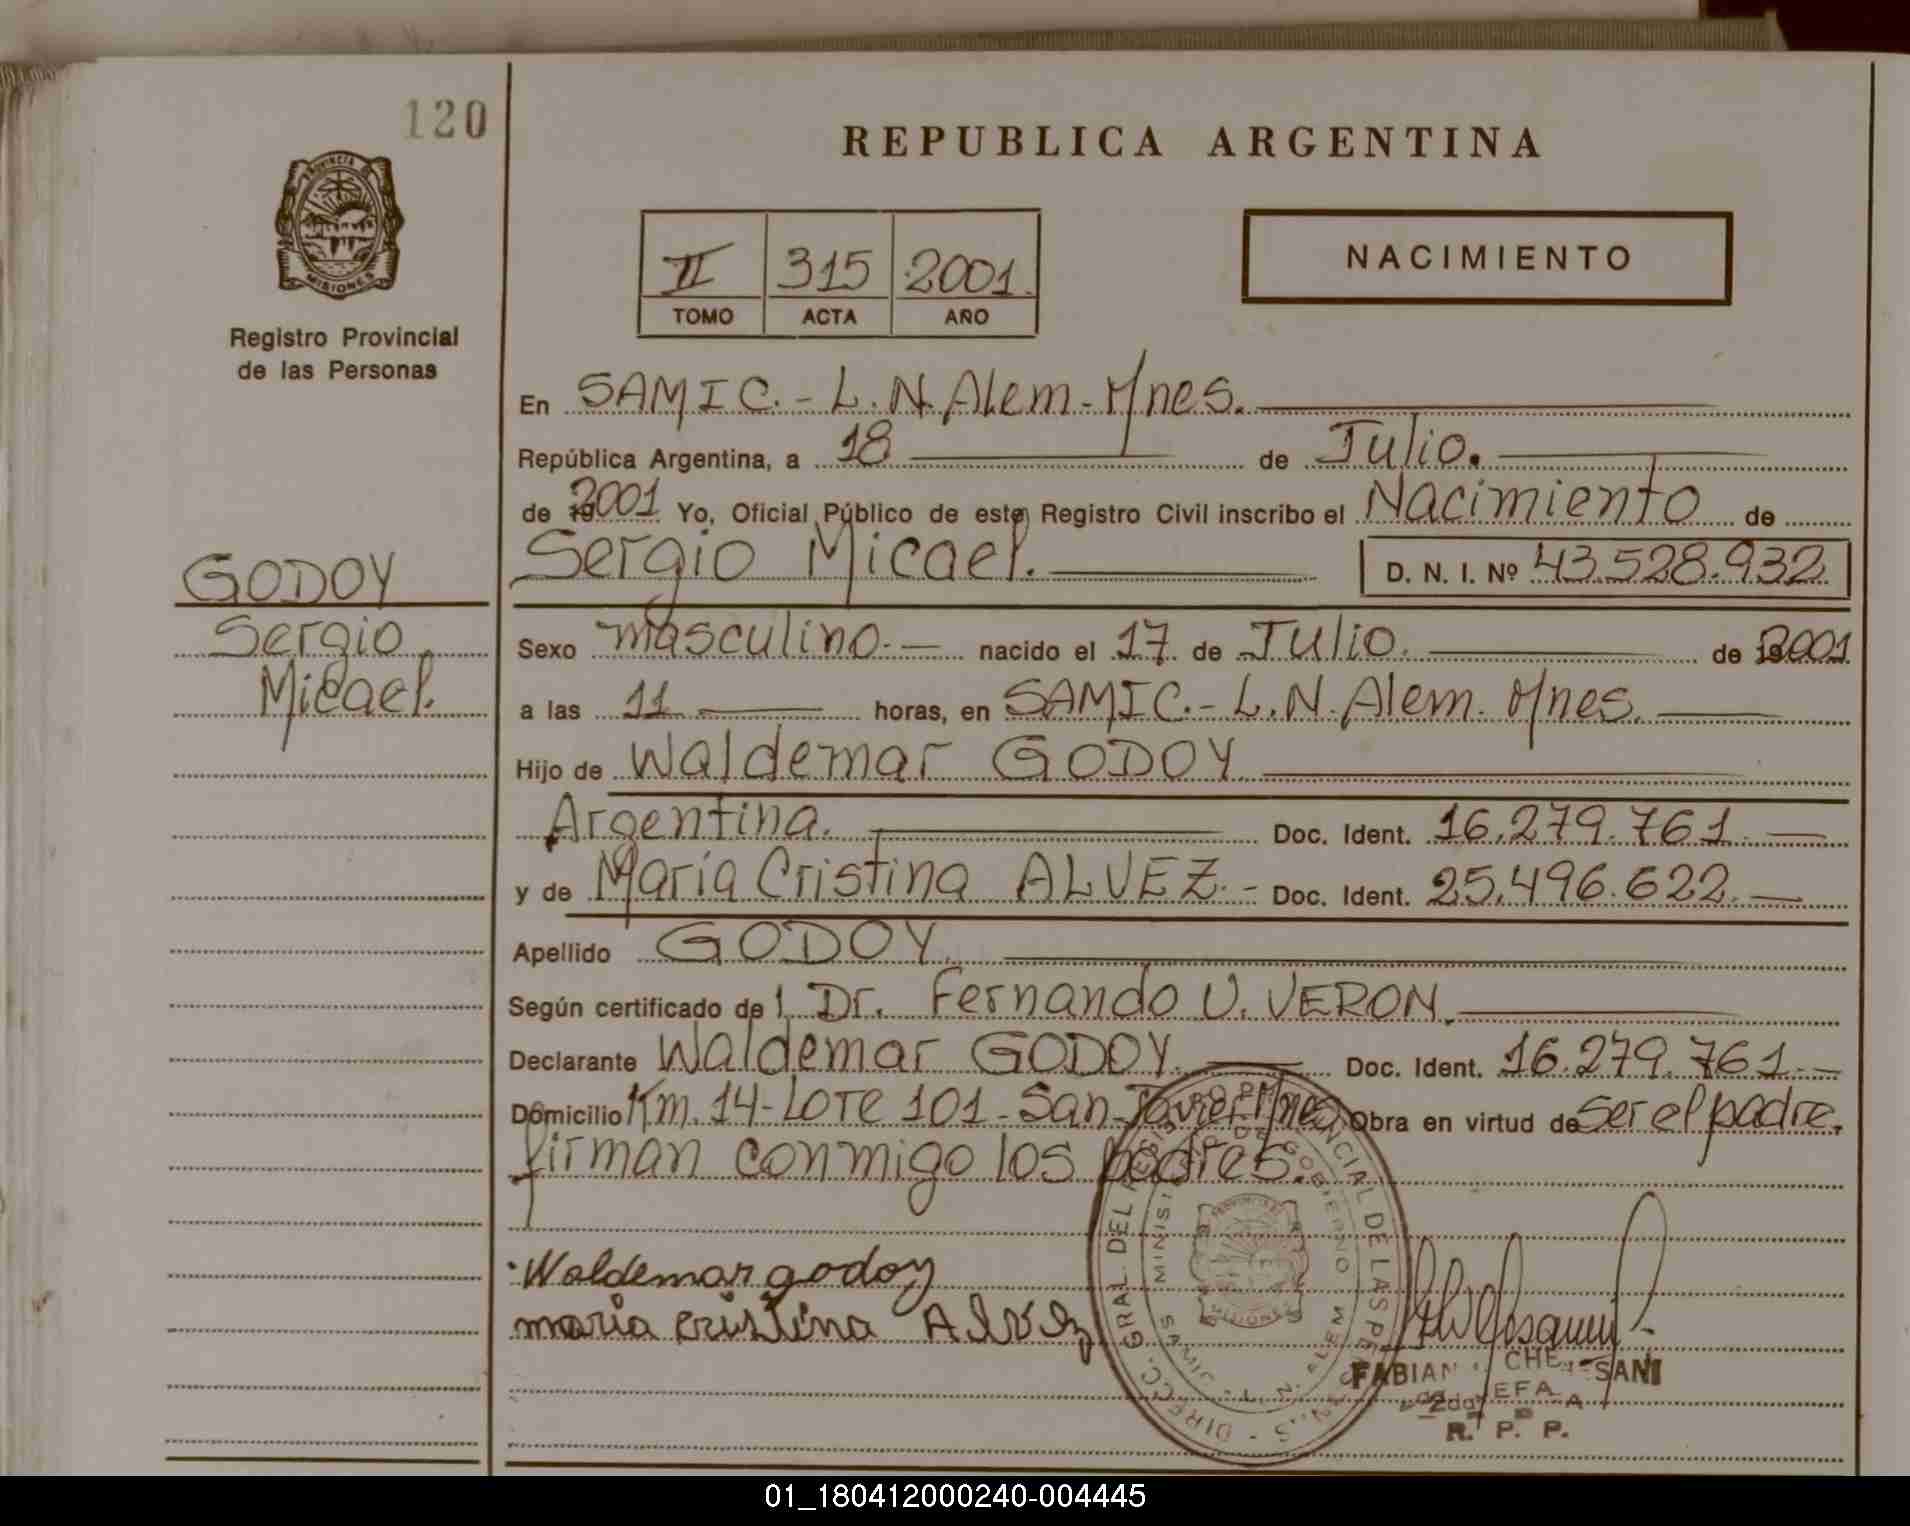 120
REPUBLICA ARGENTINA
PROVINCIA
MISIONES
Registro Provincial
de las Personas
II 315 2001
TOMO ACTA AÑO
NACIMIENTO
En SAMIC.- L. N. Alem - Mnes.
República Argentina, a 18 de Julio.
de 2001 Yo, Oficial Público de este Registro Civil inscribo el Nacimiento de
Sergio Micael. D. N. I. Nº 43.528.932
GODOY
Sergio
Micael.
Sexo masculino.- nacido el 17 de Julio. de 2001
a las 11 horas, en SAMIC.- L. N. Alem. Mnes.
Hijo de Waldemar GODOY.
Argentina. Doc. Ident. 16.279.761.-
y de María Cristina ALVEZ.- Doc. Ident. 25.496.622.-
Apellido GODOY.
Según certificado de l Dr. Fernando U. VERON.
Declarante Waldemar GODOY. Doc. Ident. 16.279.761.-
Domicilio Km. 14 - Lote 101 - San Javier Mnes Obra en virtud de Ser el padre.
firman conmigo los padres.
Waldemar godoy
maria cristina Alvez
DIRECC. GRAL. DEL REGISTRO PROVINCIAL DE LAS PERSONAS
MINISTERIO DE GOBIERNO
SAMIC - L. N. ALEM
MISIONES
FABIAN CHE SANI
2da JEFA
R. P. P.
01_180412000240-004445